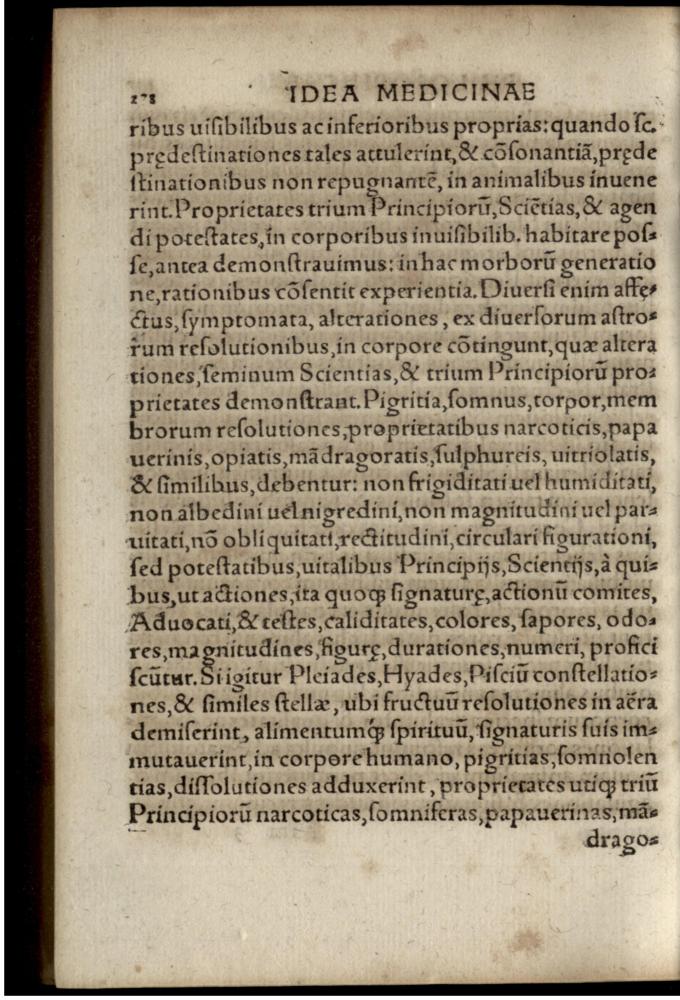 278 IDEA MEDICINAE
ribus uisibilibus ac inferioribus proprias: quando sc.
prędestinationes tales attulerint, & cõsonantiã, pręde
stinationibus non repugnantẽ, in animalibus inuene
rint. Proprietates trium Principiorũ, Sciẽtias, & agen
di potestates, in corporibus inuisibilib. habitare pos⸗
se, antea demonstrauimus: in hac morborũ generatio
ne, rationibus cõsentit experientia. Diuersi enim affę⸗
ctus, symptomata, alterationes, ex diuersorum astro⸗
rum resolutionibus, in corpore cõtingunt, quæ altera
tiones, seminum Scientias, & trium Principiorũ pro⸗
prietates demonstrant. Pigritia, somnus, torpor, mem
brorum resolutiones, proprietatibus narcoticis, papa
uerinis, opiatis, mãdragoratis, sulphureis, uitriolatis,
& similibus, debentur: non frigiditati uel humiditati,
non albedini uel nigredini, non magnitudini uel par⸗
uitati, nõ obliquitati, rectitudini, circulari figurationi,
sed potestatibus, uitalibus Principijs, Scientijs, à qui⸗
bus, ut actiones, ita quoqꝫ signaturę, actionũ comites,
Aduocati, & testes, caliditates, colores, sapores, odo⸗
res, magnitudines, figurę, durationes, numeri, profici
scũtur. Si igitur Pleiades, Hyades, Pisciũ constellatio⸗
nes, & similes stellæ, ubi fructuũ resolutiones in aëra
demiserint, alimentumqꝫ spirituũ, signaturis suis im⸗
mutauerint, in corpore humano, pigritias, somnolen
tias, dissolutiones adduxerint, proprietates utiqꝫ triũ
Principiorũ narcoticas, somniferas, papauerinas, mã⸗
drago⸗